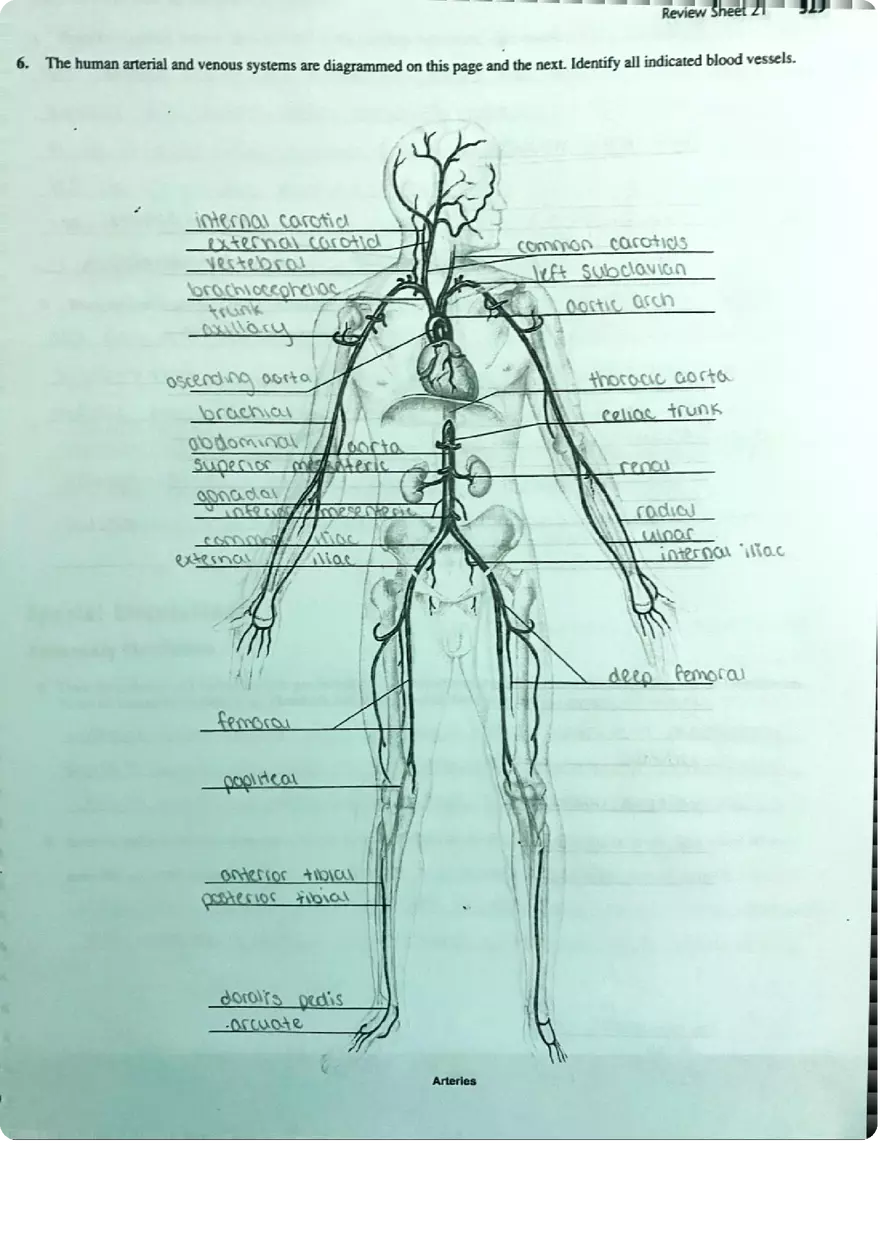 Review Sheet 21 323
6. The human arterial and venous systems are diagrammed on this page and the next. Identify all indicated blood vessels.
internal carotid
external carotid
vertebral
brachiocephaliac
trunk
axillary
ascending aorta
brachial
abdominal aorta
superior mesenteric
gonadal
inferior mesenteric
common iliac
external iliac
femoral
popliteal
anterior tibial
posterior tibial
doralis pedis
arcuate
common carotids
left subclavian
aortic arch
thoracic aorta
celiac trunk
renal
radial
ulnar
internal iliac
deep femoral
Arteries